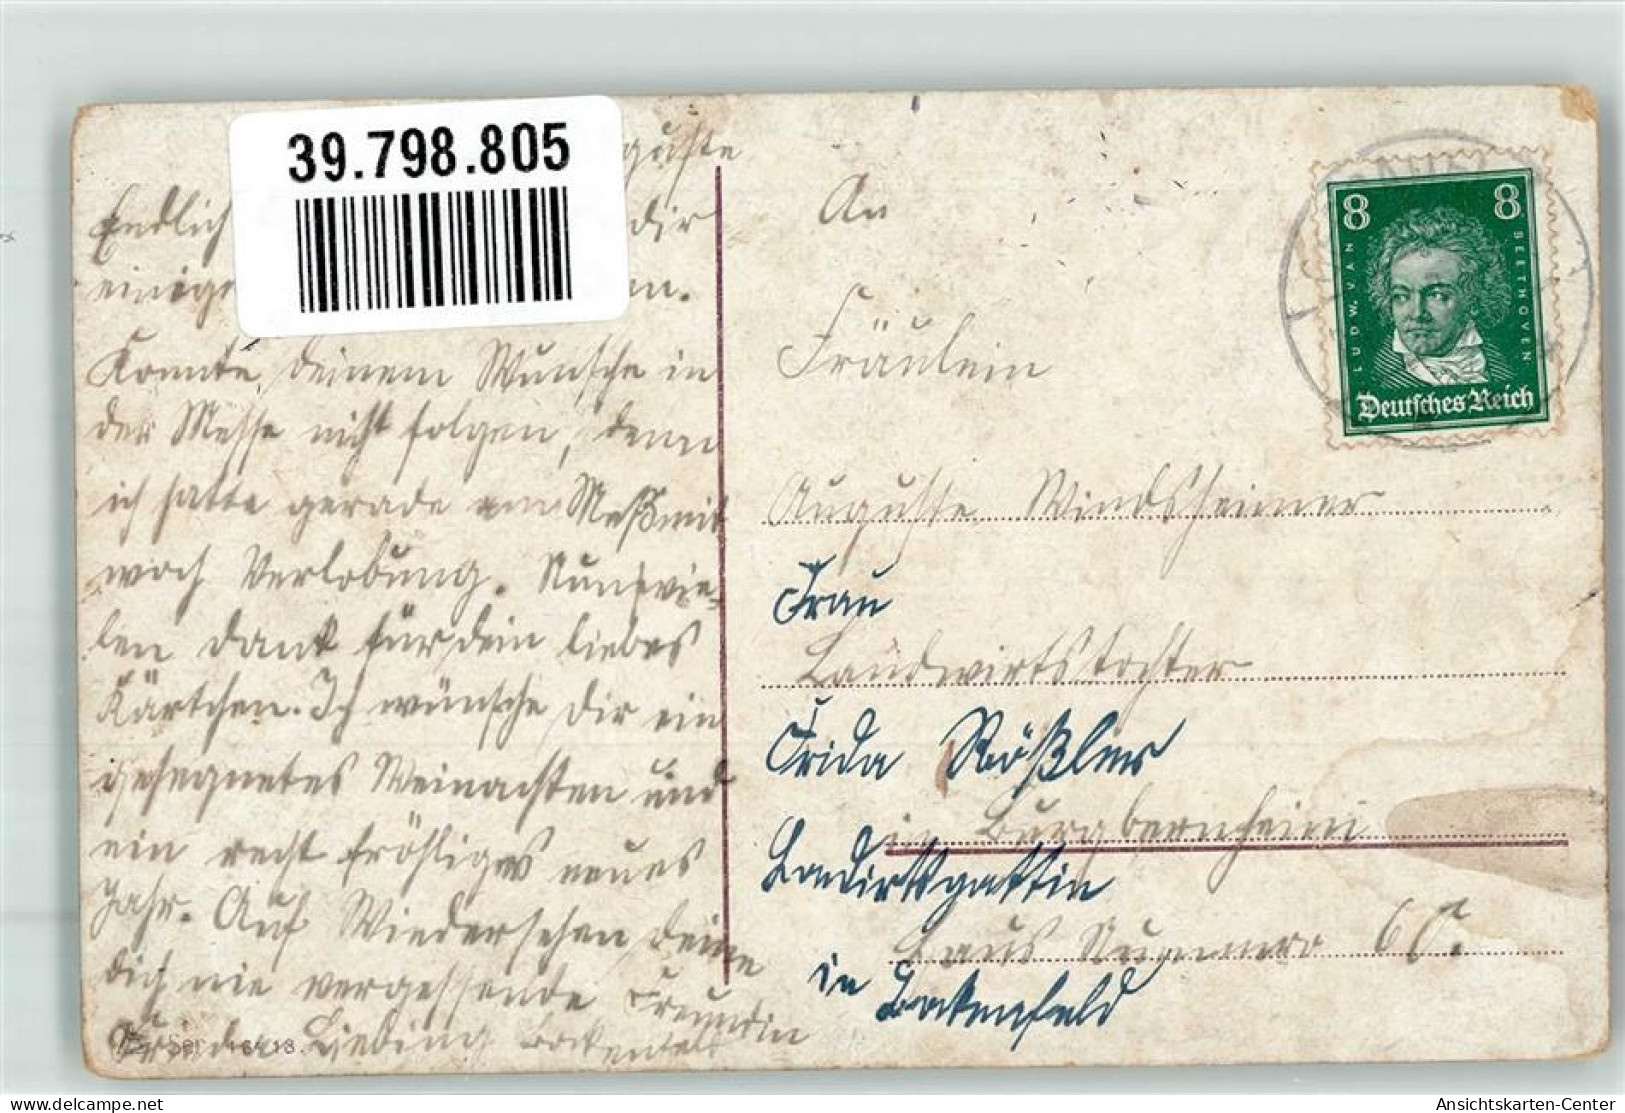 39.798.805
guste
Endlich dir
einige en.
Konnte deinem Wunsche in
der Messe nicht folgen, denn
ich hatte gerade am Meßmit
woch Verlobung. Nun vie-
len Dank für dein liebes
Kärtchen. Ich wünsche dir ein
gesegnetes Weinachten und
ein recht fröhliges neues
Jahr. Auf Wiedersehen, deine
dich nie vergessende Freundin
Ser.
An
Fräulein
Auguste Windsheimer
Frau
Landwirtstochter
Frida Rößler
in Burgbernheim
Landwirtsgattin
Haus Nummer
in Bockenfeld
8 8
LUDW. V. VAN BEETHOVEN
Deutsches Reich
delcampe.net
Ansichtskarten-Center